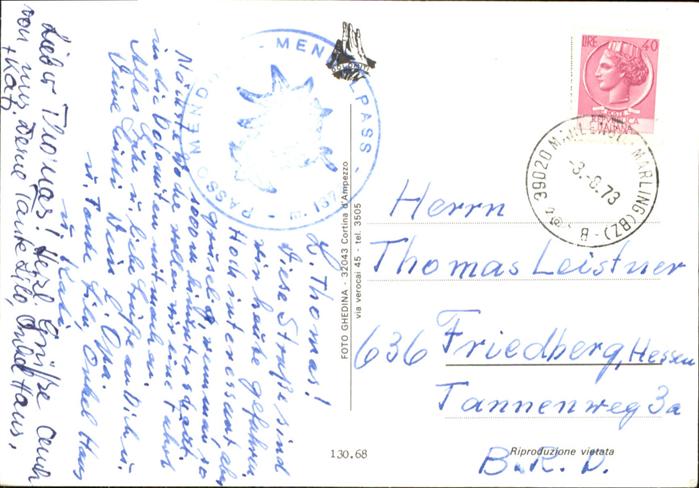 L. Thomas!
Diese Straße sind
wir heute gefahren.
Hochinteressant, aber
gruselig, wenn man so
1000 m hinunter schaut.
Nächste Woche wollen wir eine Fahrt
in die Dolomiten mitmachen.
Alles Gute u. liebe Grüße an Dich u.
Deine Lieben Dein L. Opa.
u. Tante Lilo, Onkel Hans
u. Kati.
Lieber Thomas! Herzl. Grüße auch
von mir, Deine Tante Lilo, Onkel Hans,
+ Kati
PASSO MENDOLA - MENDELPASS
FOTO GHEDINA - 32043 Cortina d'Ampezzo
via verocai 45 - tel. 3505
LIRE 40
POSTE
ITALIANA
39020 MARLENGO - MARLING (BZ)
73
B
Herrn
Thomas Leistner
636 Friedberg, Hessen
Tannenweg 3a
B.R.D.
130.68
Riproduzione vietata